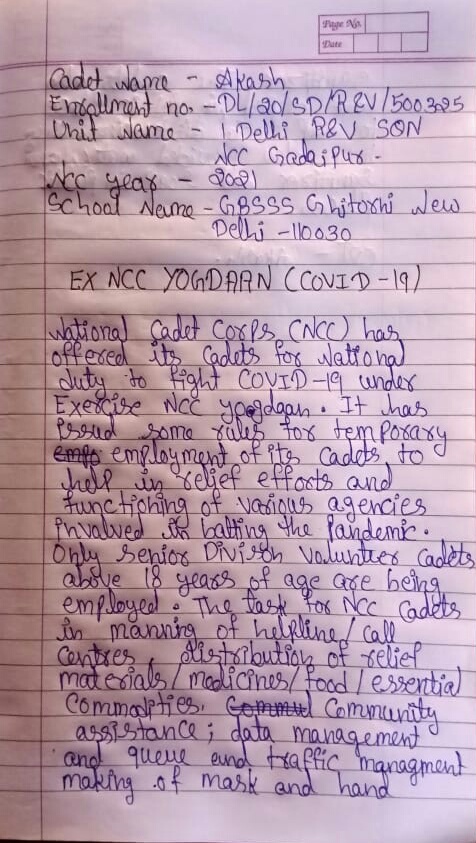 Page No.
Date
Cadet Name - Akash
Enrollment no. - DL/20/SD/R&V/500325
Unit Name - 1 Delhi R&V SQN
NCC Gadaipur.
NCC year - 2021
School Neme - GBSSS Ghitorni New
Delhi - 110030
EX NCC YOGDAAN (COVID-19)
National Cadet Corps (NCC) has
offered its Cadets for National
duty to fight COVID-19 under
Exercise NCC yogdaan. It has
issud some rules for temporary
empo employment of its Cadets to
help in relief efforts and
functioning of various agencies
involved in batting the Pandemic.
Only senior Division Volunteer Cadets
above 18 years of age are being
employed. The task for NCC Cadets
in manning of helpline/call
Centres, distribution of relief
materials/medicines/food/essential
Commodities. Commu Community
assistance; data management
and queue and traffic managment
making of mask and hand